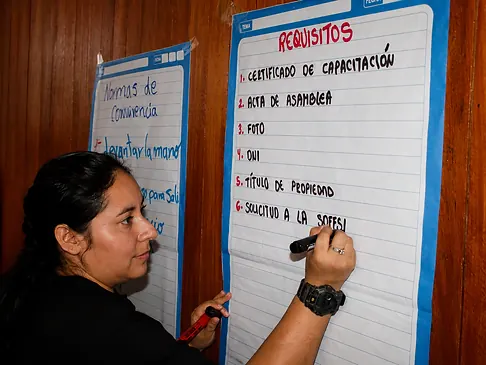 Normas de
convivencia
- Levantar la mano
para Sali
TEMA:
REQUISITOS
1. CERTIFICADO DE CAPACITACIÓN
2. ACTA DE ASAMBLEA
3. FOTO
4. DNI
5. TÍTULO DE PROPIEDAD
6. SOLICITUD A LA SOFFSI